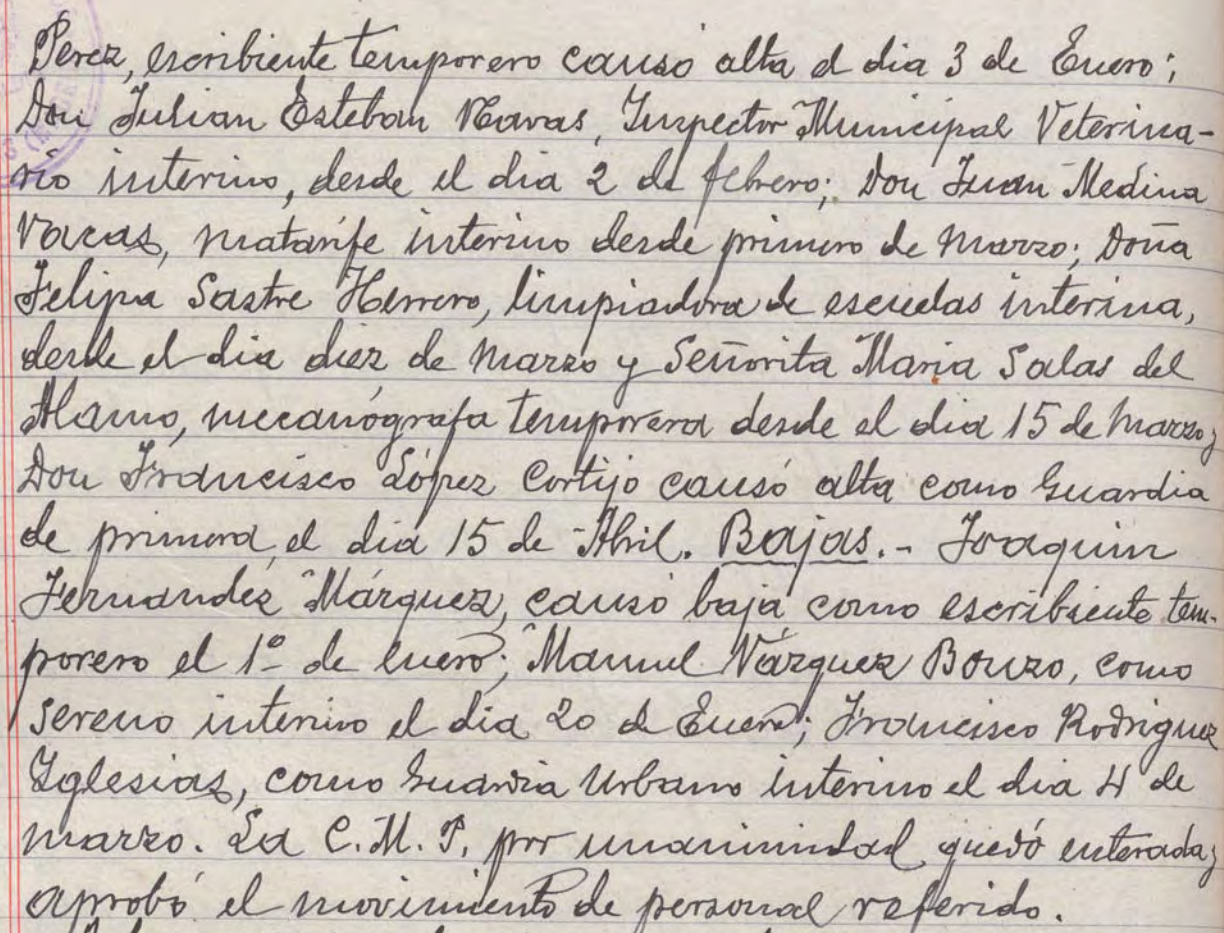 Perez, escribiente temporero causó alta el dia 3 de Enero;
Don Julian Esteban Navas, Inspector Municipal Veterina-
rio interino, desde el dia 2 de febrero; Don Juan Medina
Vacas, matarife interino desde primero de Marzo; Doña
Felipa Sastre Herrero, limpiadora de escuelas interina,
desde el dia diez de Marzo y Señorita Maria Salas del
Alamo, mecanógrafa temporera desde el dia 15 de Marzo;
Don Francisco López Cortijo causó alta como Guardia
de primera, el dia 15 de Abril. Bajas.- Joaquin
Fernandez Márquez, causó baja como escribiente tem-
porero el 1º de enero; Manuel Vázquez Bouzo, como
Sereno interino el dia 20 de Enero; Francisco Rodriguez
Iglesias, como Guardia Urbano interino el dia 4 de
marzo. La C.M.P. por unanimidad quedó enterada y
aprobó el movimiento de personal referido.